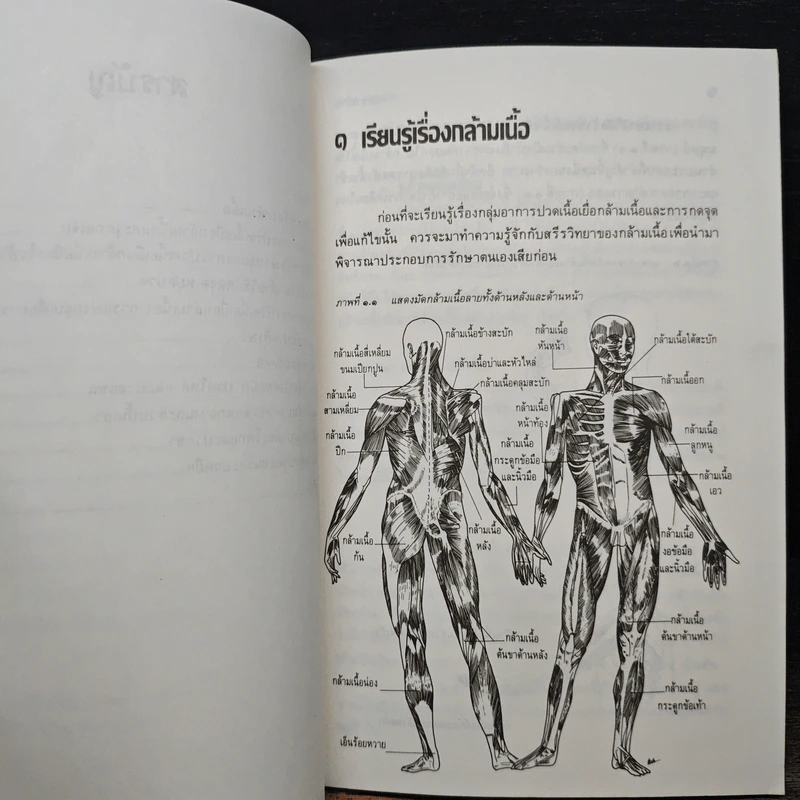 สารบัญ
๑ เรียนรู้เรื่องกล้ามเนื้อ
ก่อนที่จะเรียนรู้เรื่องกลุ่มอาการปวดเนื้อเยื่อกล้ามเนื้อและการกดจุด
เพื่อแก้ไขนั้น ควรจะมาทำความรู้จักกับสรีรวิทยาของกล้ามเนื้อ เพื่อนำมา
พิจารณาประกอบการรักษาตนเองเสียก่อน
ภาพที่ ๑.๑ แสดงมัดกล้ามเนื้อลายทั้งด้านหลังและด้านหน้า
กล้ามเนื้อข้างสะบัก
กล้ามเนื้อสี่เหลี่ยม
ขนมเปียกปูน
กล้ามเนื้อบ่าและหัวไหล่
กล้ามเนื้อคลุมสะบัก
กล้ามเนื้อ
สามเหลี่ยม
กล้ามเนื้อ
ปีก
กล้ามเนื้อ
กระดูกข้อมือ
และนิ้วมือ
กล้ามเนื้อ
ก้น
กล้ามเนื้อ
หลัง
กล้ามเนื้อ
ต้นขาด้านหลัง
กล้ามเนื้อน่อง
เอ็นร้อยหวาย
กล้ามเนื้อ
หันหน้า
กล้ามเนื้อใต้สะบัก
กล้ามเนื้ออก
กล้ามเนื้อ
หน้าท้อง
กล้ามเนื้อ
ลูกหนู
กล้ามเนื้อ
เอว
กล้ามเนื้อ
งอข้อมือ
และนิ้วมือ
กล้ามเนื้อ
ต้นขาด้านหน้า
กล้ามเนื้อ
กระดูกข้อเท้า